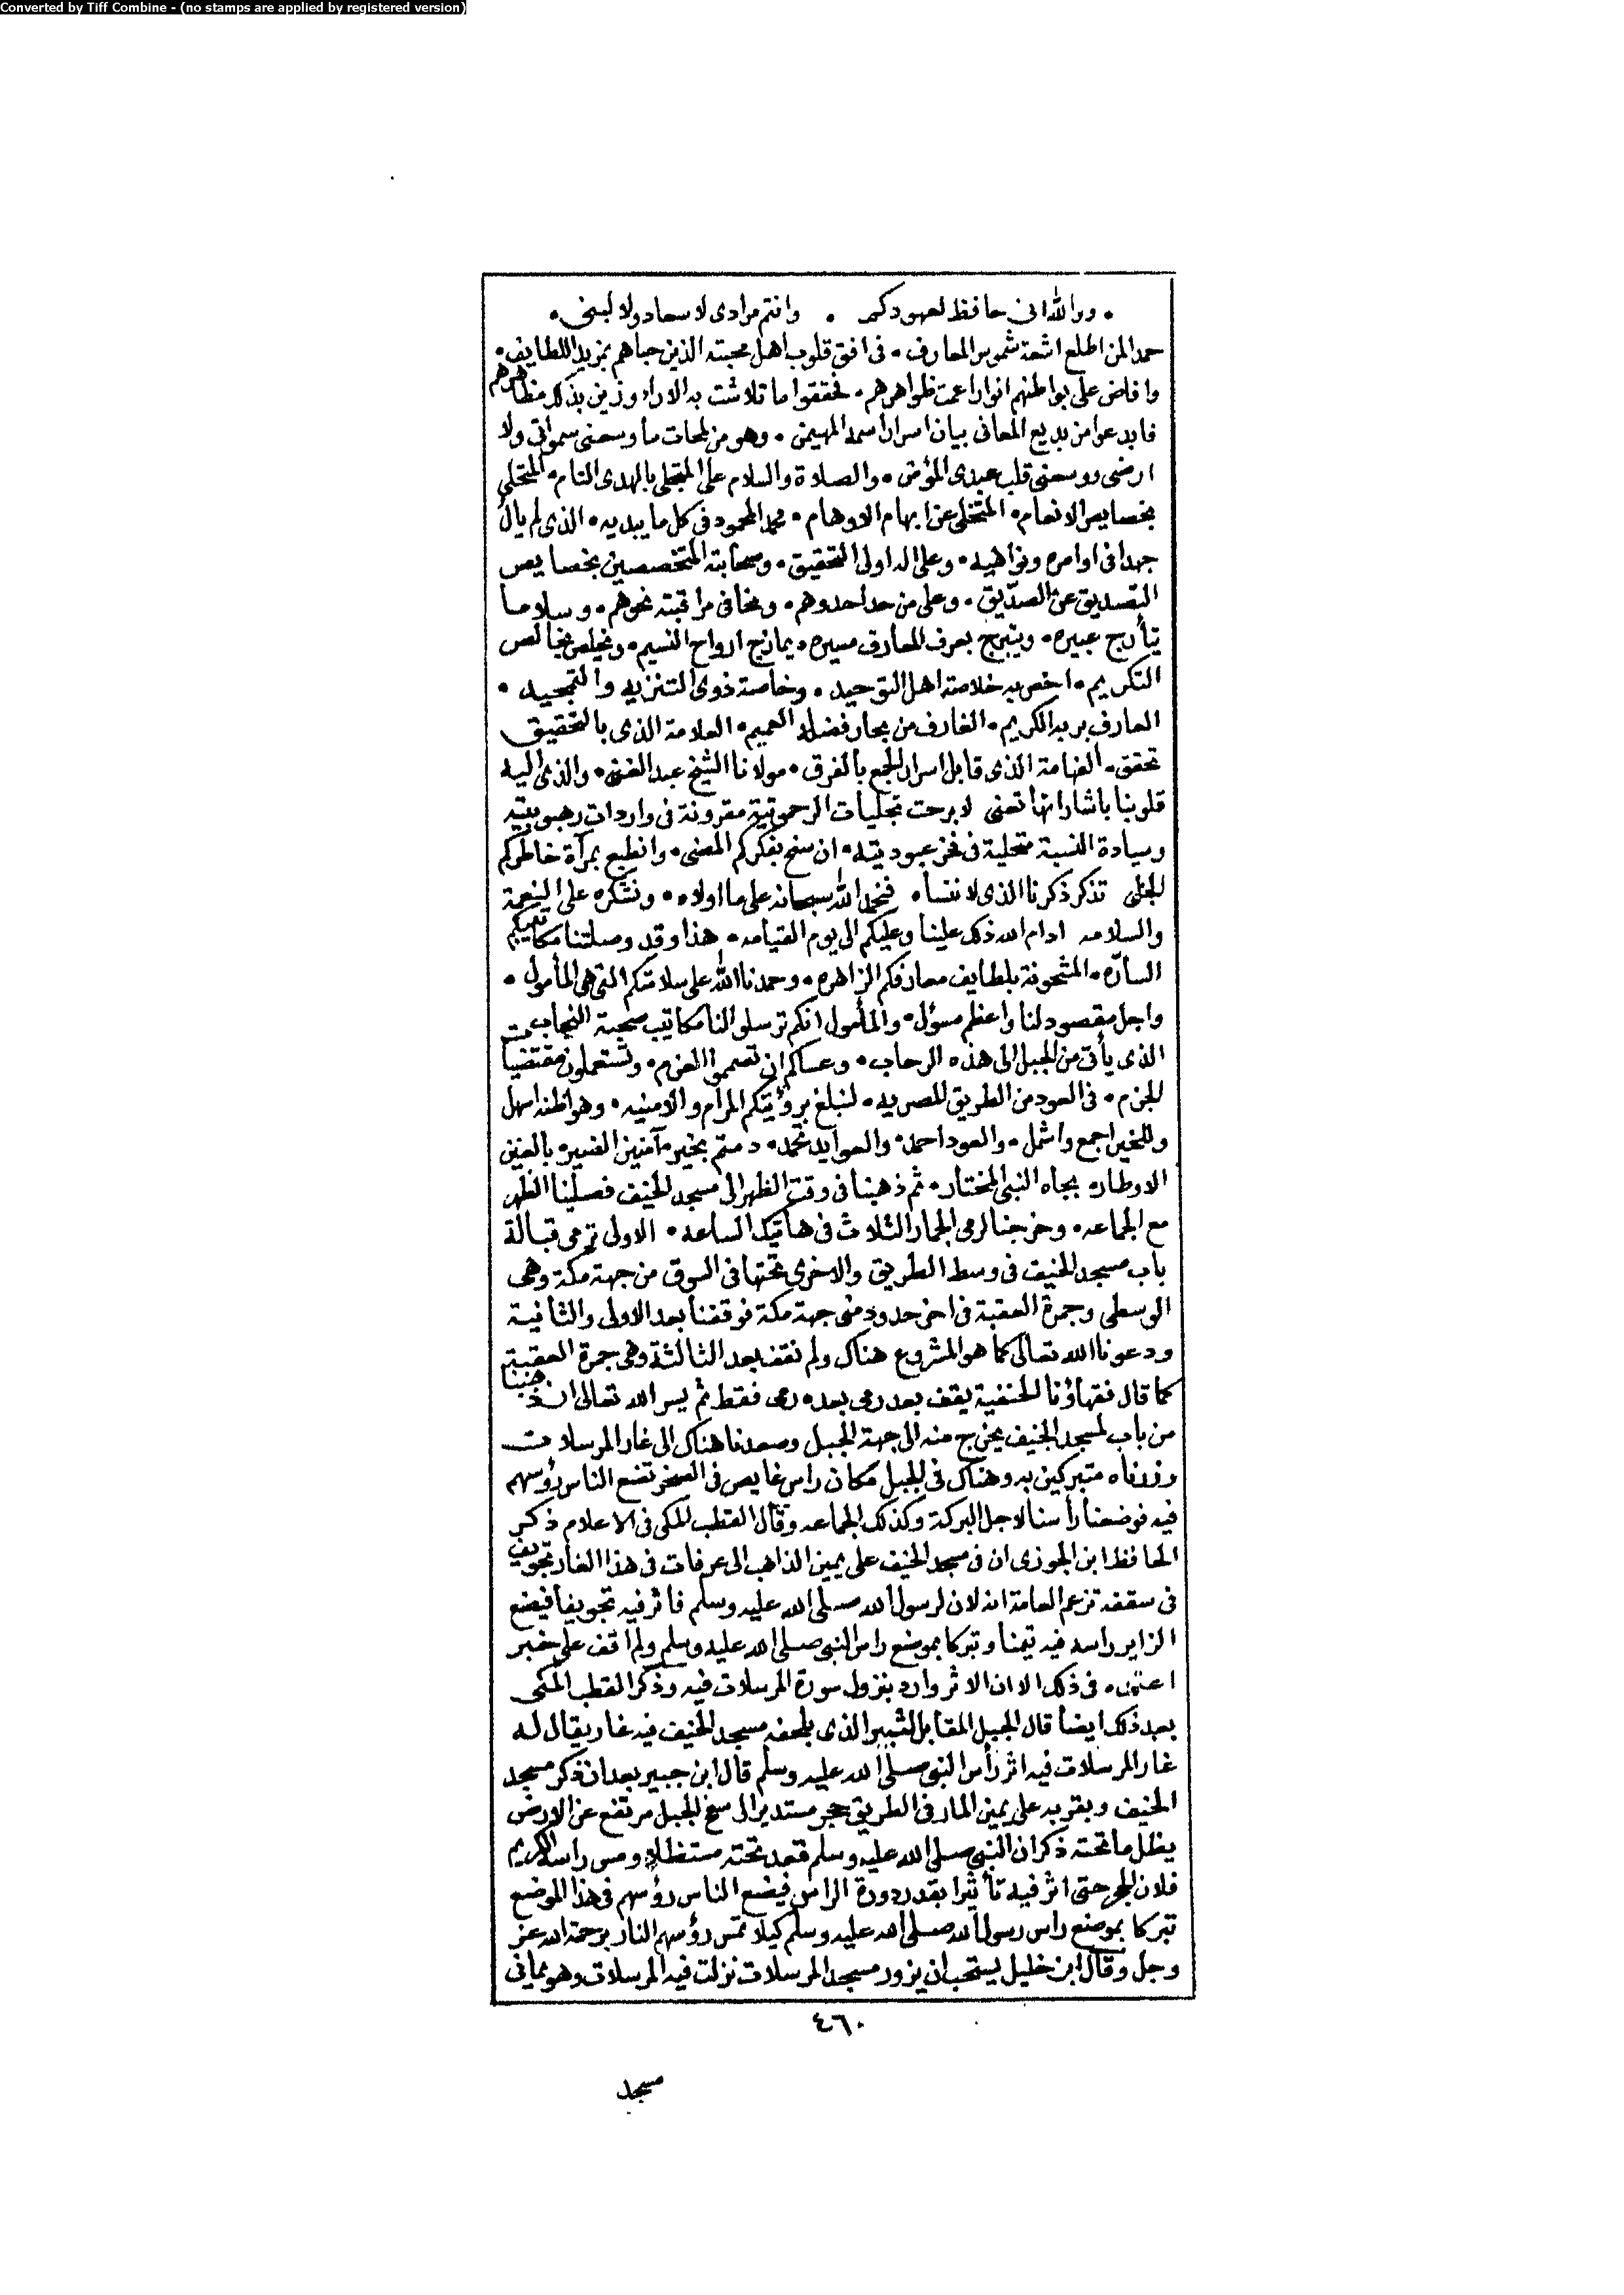 Converted by Tiff Combine - (no stamps are applied by registered version)
• ووالله انى حافظ لعهودكم • وانتم مرادى لا سعاد ولا لبنى •
حمدا لمن اطلع اشعة شموس المعارف • فى افق قلوب اهل محبته الذين حباهم بمزيد اللطايف •
وافاض على بواطنهم انوارا عمت ظواهرهم • فحققوا ما تلاشت به الاراء وزين بذلك مظاهرهم
فابدعوا من بديع المعانى بيان اسرار اسمه المهيمن • وهو من لمحات ما وسعنى سمواتى ولا
ارضى ووسعنى قلب عبدى المؤمن • والصلاة والسلام على المتجلى بالهدى التام • المتحلى
بخصايص الانعام • المتخلى عن ابهام الاوهام • محمد المحمود فى كل ما يبديه • الذى لم يال
جهدا فى اوامره ونواهيه • وعلى اله اولى التحقيق • وصحابته المتخصصين بخصايص
التصديق عن الصدّيق • وعلى من حدا حدوهم • ونحا فى مراقبته نحوهم • وسلاما
يتأرج عبيره • ويتبرج بعرف المعارف مسيره • يمازج ارواح النسيم • ويخلص بخالص
التكريم • اخص به خلاصة اهل التوحيد • وخاصة ذوى التنزيه والتمجيد •
العارف بربه الكريم • الغارف من بحار فضله العميم • العلامة الذى بالتحقيق
تحقق • الفهامة الذى قابل اسرار الجمع بالفرق • مولانا الشيخ عبد الغنى • والذى اليه
قلوبنا باشاراتها تعنى لا برحت تجليات الرحموتية مقرونة فى واردات رهبوتيته
وسيادة النسبة متحلية فى فخر عبوديته • ان سنح بفكركم المضى • وانطبع بمرآة خاطركم
الجلى تذكر ذكرنا الذى لا ننساه فنحمد الله سبحانه على ما اولاه • ونشكره على النعمة
والسلامه ادام الله ذلك علينا وعليكم الى يوم القيامه • هذا وقد وصلتنا مكاتيبكم
السارّه • المشحونة بلطايف معارفكم الزاهره • وحمدنا الله على سلامتكم التى هى المأمول •
واجل مقصود لنا واعظم مسؤل • والمأمول انكم ترسلو النا مكاتيب صحبة النجاب
الذى يأتى من الجبل الى هذه الرحاب • وعساكم ان تصمموا العزم • وتستعملون مقتضيات
الجزم • فى العود من الطريق المصريه • لنبلغ برؤيتكم المرام والامنيه • وهو اظنه اسهل
وللخير اجمع واشمل • والعود احمد • والعوايد تحمد • دمتم بخير • آمنين الضير • بالغين
الاوطار • بجاه النبى المختار • ثم ذهبنا فى وقت الظهر الى مسجد الخيف فصلينا الظهر
مع الجماعه • وخرجنا لرمى الجمار الثلاث فى هاتيك الساعه • الاولى ترمى قبالة
باب مسجد الخيف فى وسط الطريق والاخرى تحتها فى السوق من جهة مكة وهى
الوسطى وجمرة العقبة فى اخر حدود منى جهة مكة فوقفنا بعد الاولى والثانية
ودعونا الله تعالى كما هو المشروع هناك ولم نقف بعد الثالثة وهى جمرة العقبة
كما قال فقهاؤنا الحنفية يقف بعد رمى بعده رمى فقط ثم يسر الله تعالى ان ذهبنا
من باب لمسجد الخيف يخرج منه الى جهة الجبل وصعدنا هناك الى غار المرسلات
وزرناه متبركين به وهناك فى الجبل مكان راس غايص فى الصخر تضع الناس رؤسهم
فيه فوضعنا رأسنا لاجل البركة وكذلك الجماعه وقال القطب المكى فى الاعلام ذكر
الحافظ ابن الجوزى ان فى مسجد الخيف على يمين الذاهب الى عرفات فى هذا الغار تجويف
فى سقفه تزعم العامة انه لان لرسول الله صلى الله عليه وسلم فاثر فيه تجويفا فيضع
الزاير راسه فيه تيمنا وتبركا بموضع راس النبى صلى الله عليه وسلم ولم اقف على خبر
اعتمده فى ذلك الا ان الاثر وارد بنزول سورة المرسلات فيه وذكر القطب المكى
بعد ذلك ايضا قال الجبل المقابل لثبير الذى يلحفه مسجد الخيف فيه غار يقال له
غار المرسلات فيه اثر رأس النبى صلى الله عليه وسلم قال ابن جبير بعد ان ذكر مسجد
الخيف وبقربه على يمين المار فى الطريق حجر مستدير الى سفح الجبل مرتفع عن الارض
يظل ما تحته ذكر ان النبى صلى الله عليه وسلم قعد تحته مستظلا ومس راسه الكريم
فلان الحجر حتى اثر فيه تأثيرا بقدر دورة الراس فيضع الناس رؤسهم فى هذا الموضع
تبركا بموضع راس رسول الله صلى الله عليه وسلم كيلا تمس رؤسهم النار برحمة الله عز
وجل وقال ابن خليل يستحب ان يزور مسجد المرسلات نزلت فيه المرسلات وهو يمانى
٤٦٠
مسجد